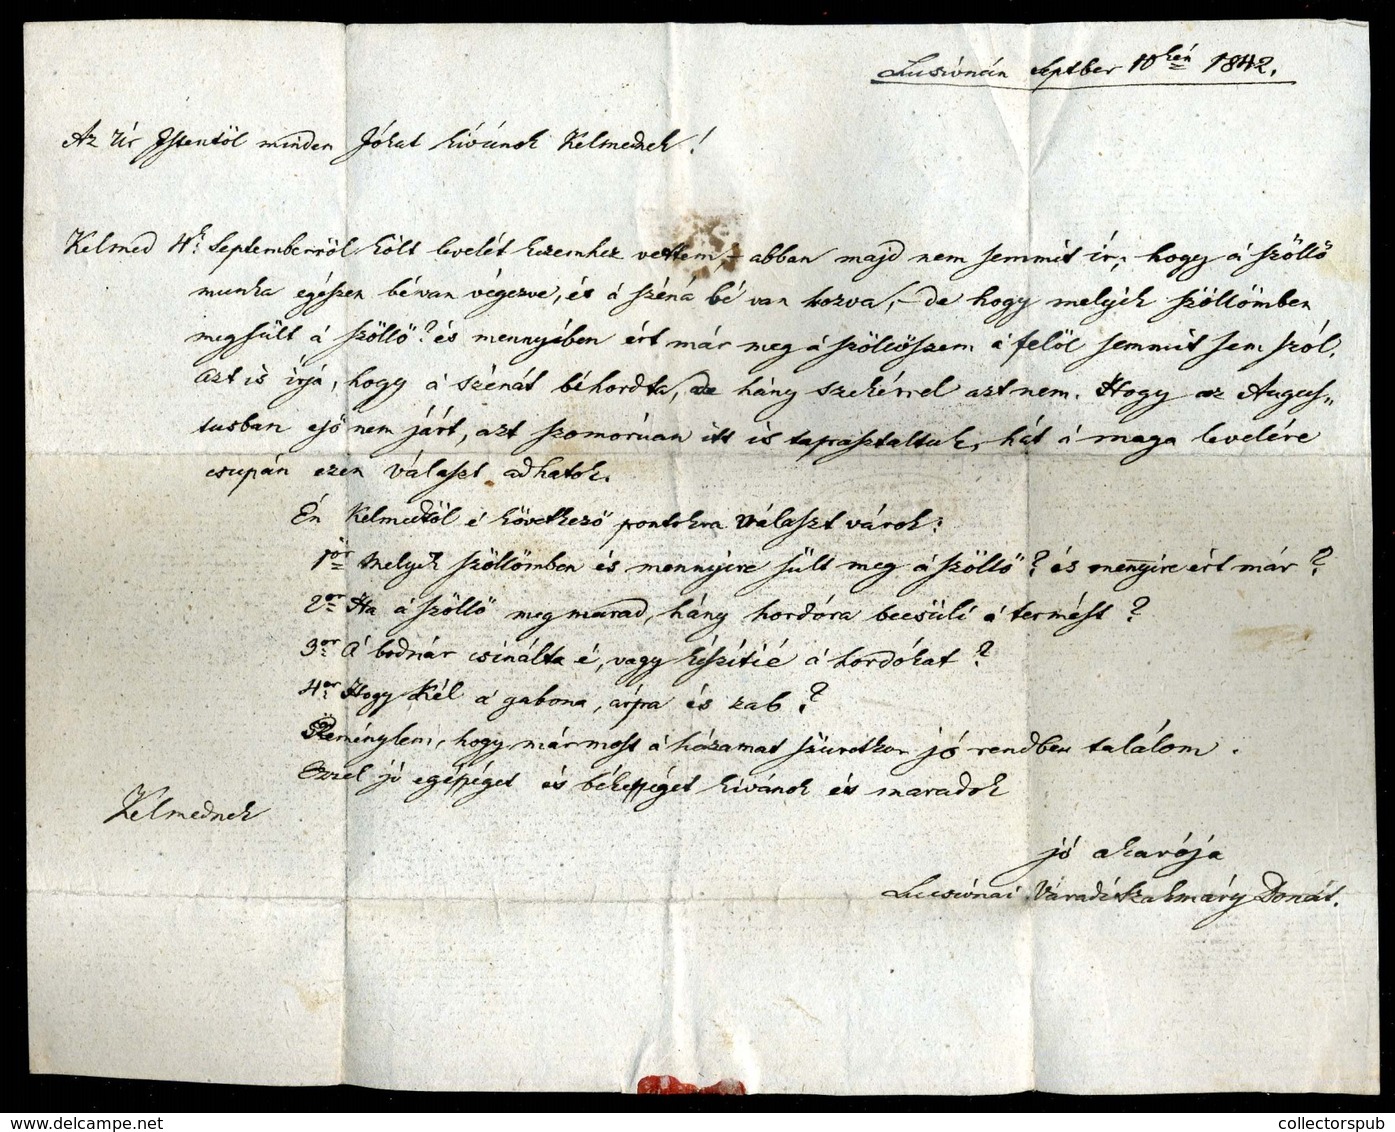 Lucsivnán septber 10kén 1842.
Az Úr Istentöl minden Jókat kivánok Kelmednek!
Kelmed 4k Septemberröl költ levelét kezemhez vettem – abban majd nem semmit ir, hogy á szöllö
munka egészen bévan végezve, és á széna bé van hozva, – de hogy melyik szöllömben
megsült á szöllö? és mennyében ért már meg á szöllöszem á felöl semmit sem szól.
azt is írja, hogy á szénát béhordta, de hány szekérrel azt nem. Hogy az Augus„
tusban esö nem járt, azt szomorúan itt is tapasztaltuk, hát á maga levelére
csupán ezen választ adhatok.
Én Kelmedtöl é következö pontokra választ várok:
1ör Melyik szöllömben és mennyire sült meg á szöllö? és menyire ért már?
2or Ha á szöllö meg marad, hány hordóra becsüli á termést?
3or Á bodnár csinálta é, vagy készitié á hordókat?
4er Hogy kél á gabona, árpa és zab?
Reménylem, hogy már most á házamat szüretkor jó rendben találom.
Ezzel jó egésséget és békességet kivánok és maradok
Kelmednek
jó akarója
Lucsivnai Váradi Szakmáry Donát.
collectorspub